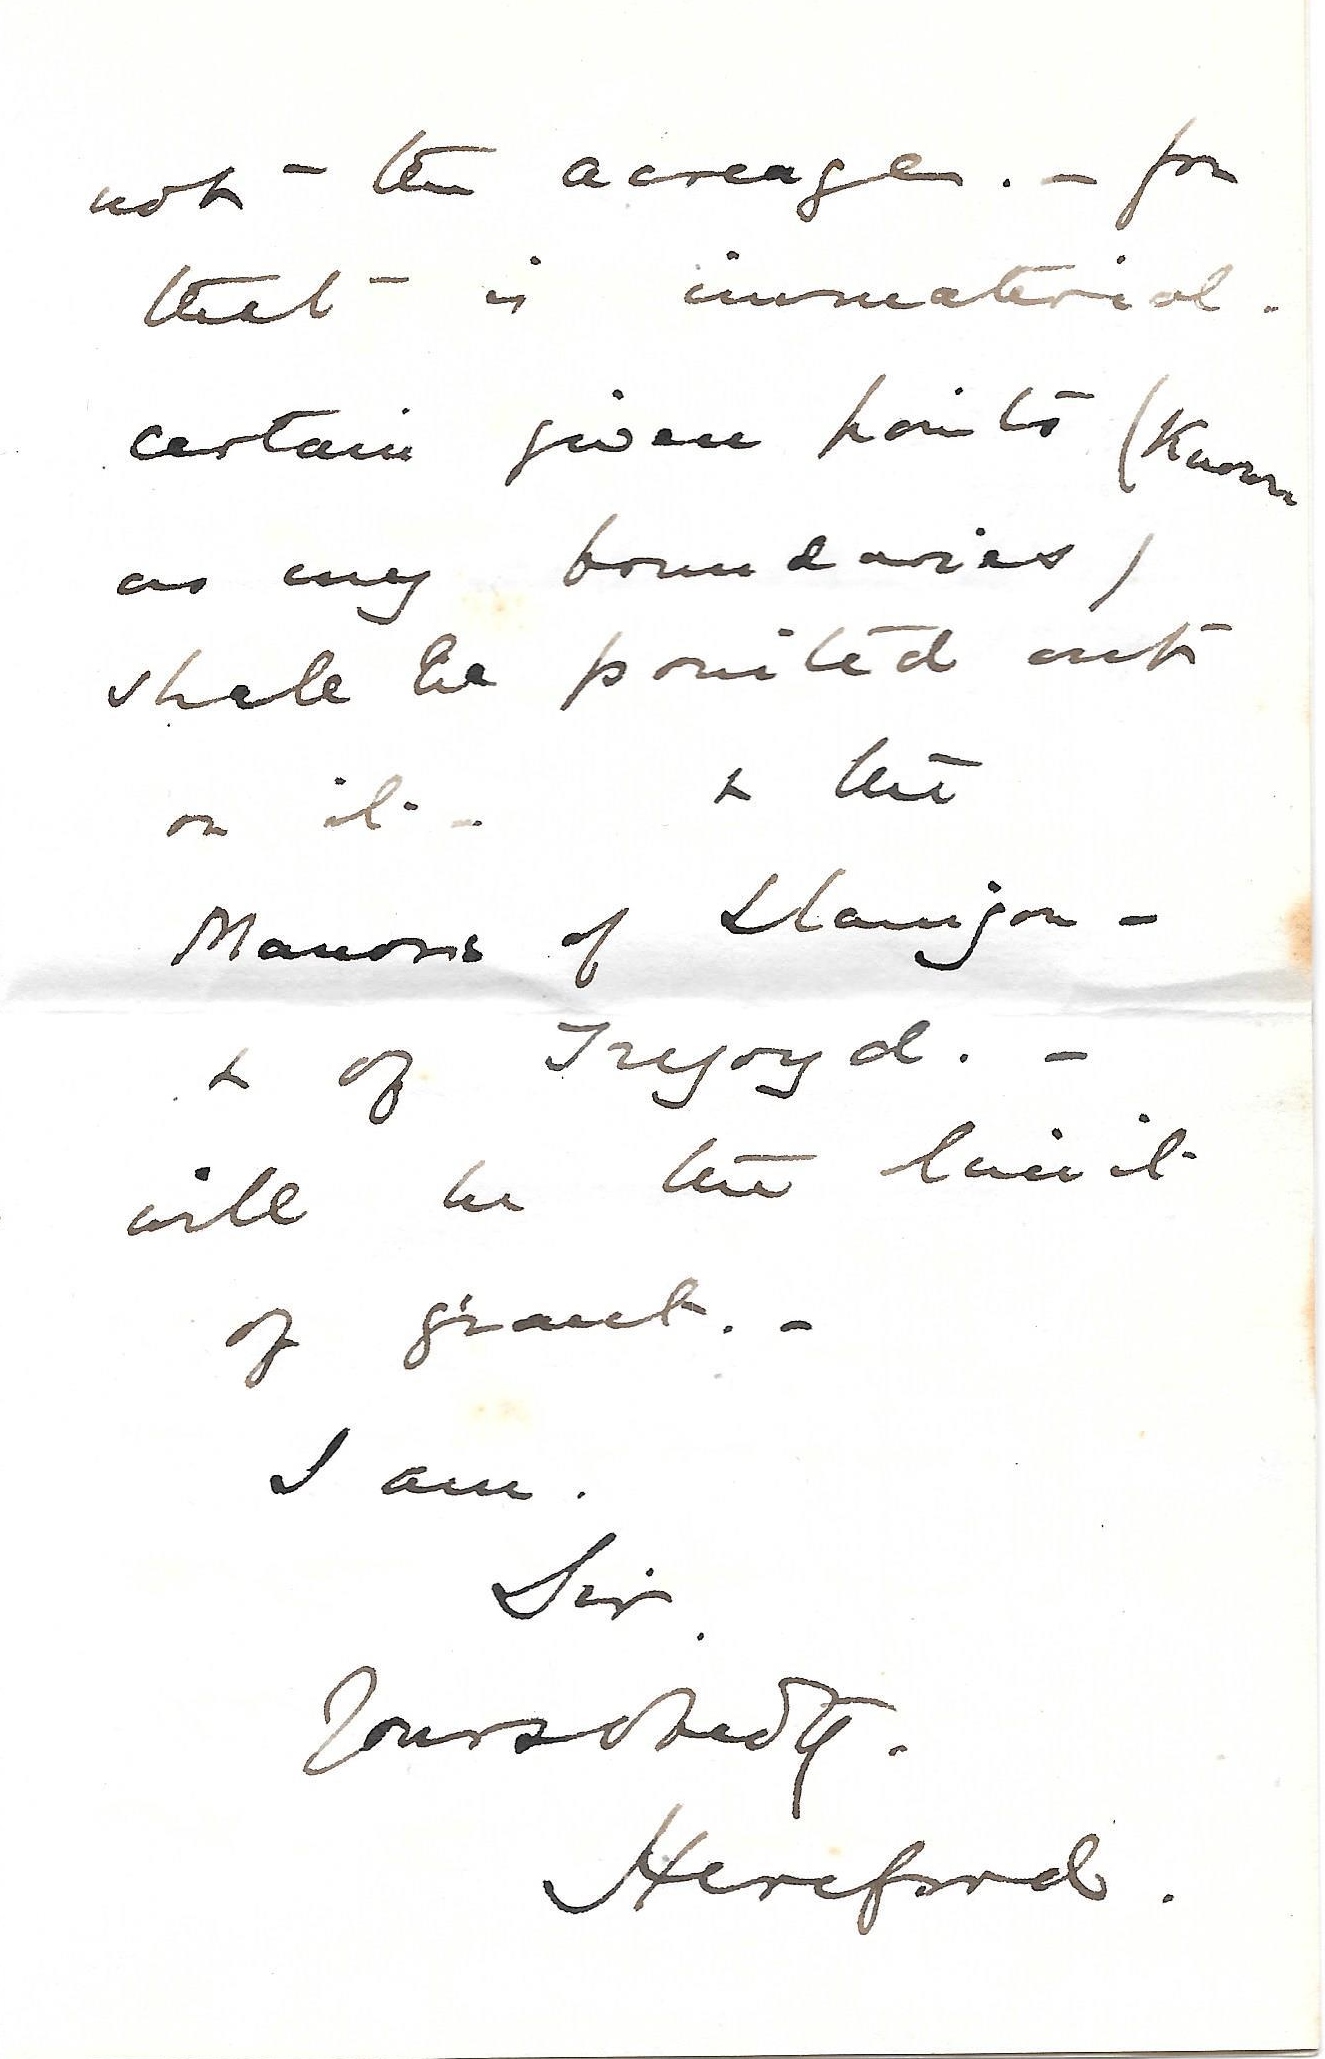 not - the acreage. - for
that - is immaterial.
certain given points (Known
as my boundaries)
shall be pointed out
on it - & the
Manors of Llanigon -
& of Tregoyd. -
will be the limit
of grant. -
I am.
Sir.
Yours obedtly.
Hereford.